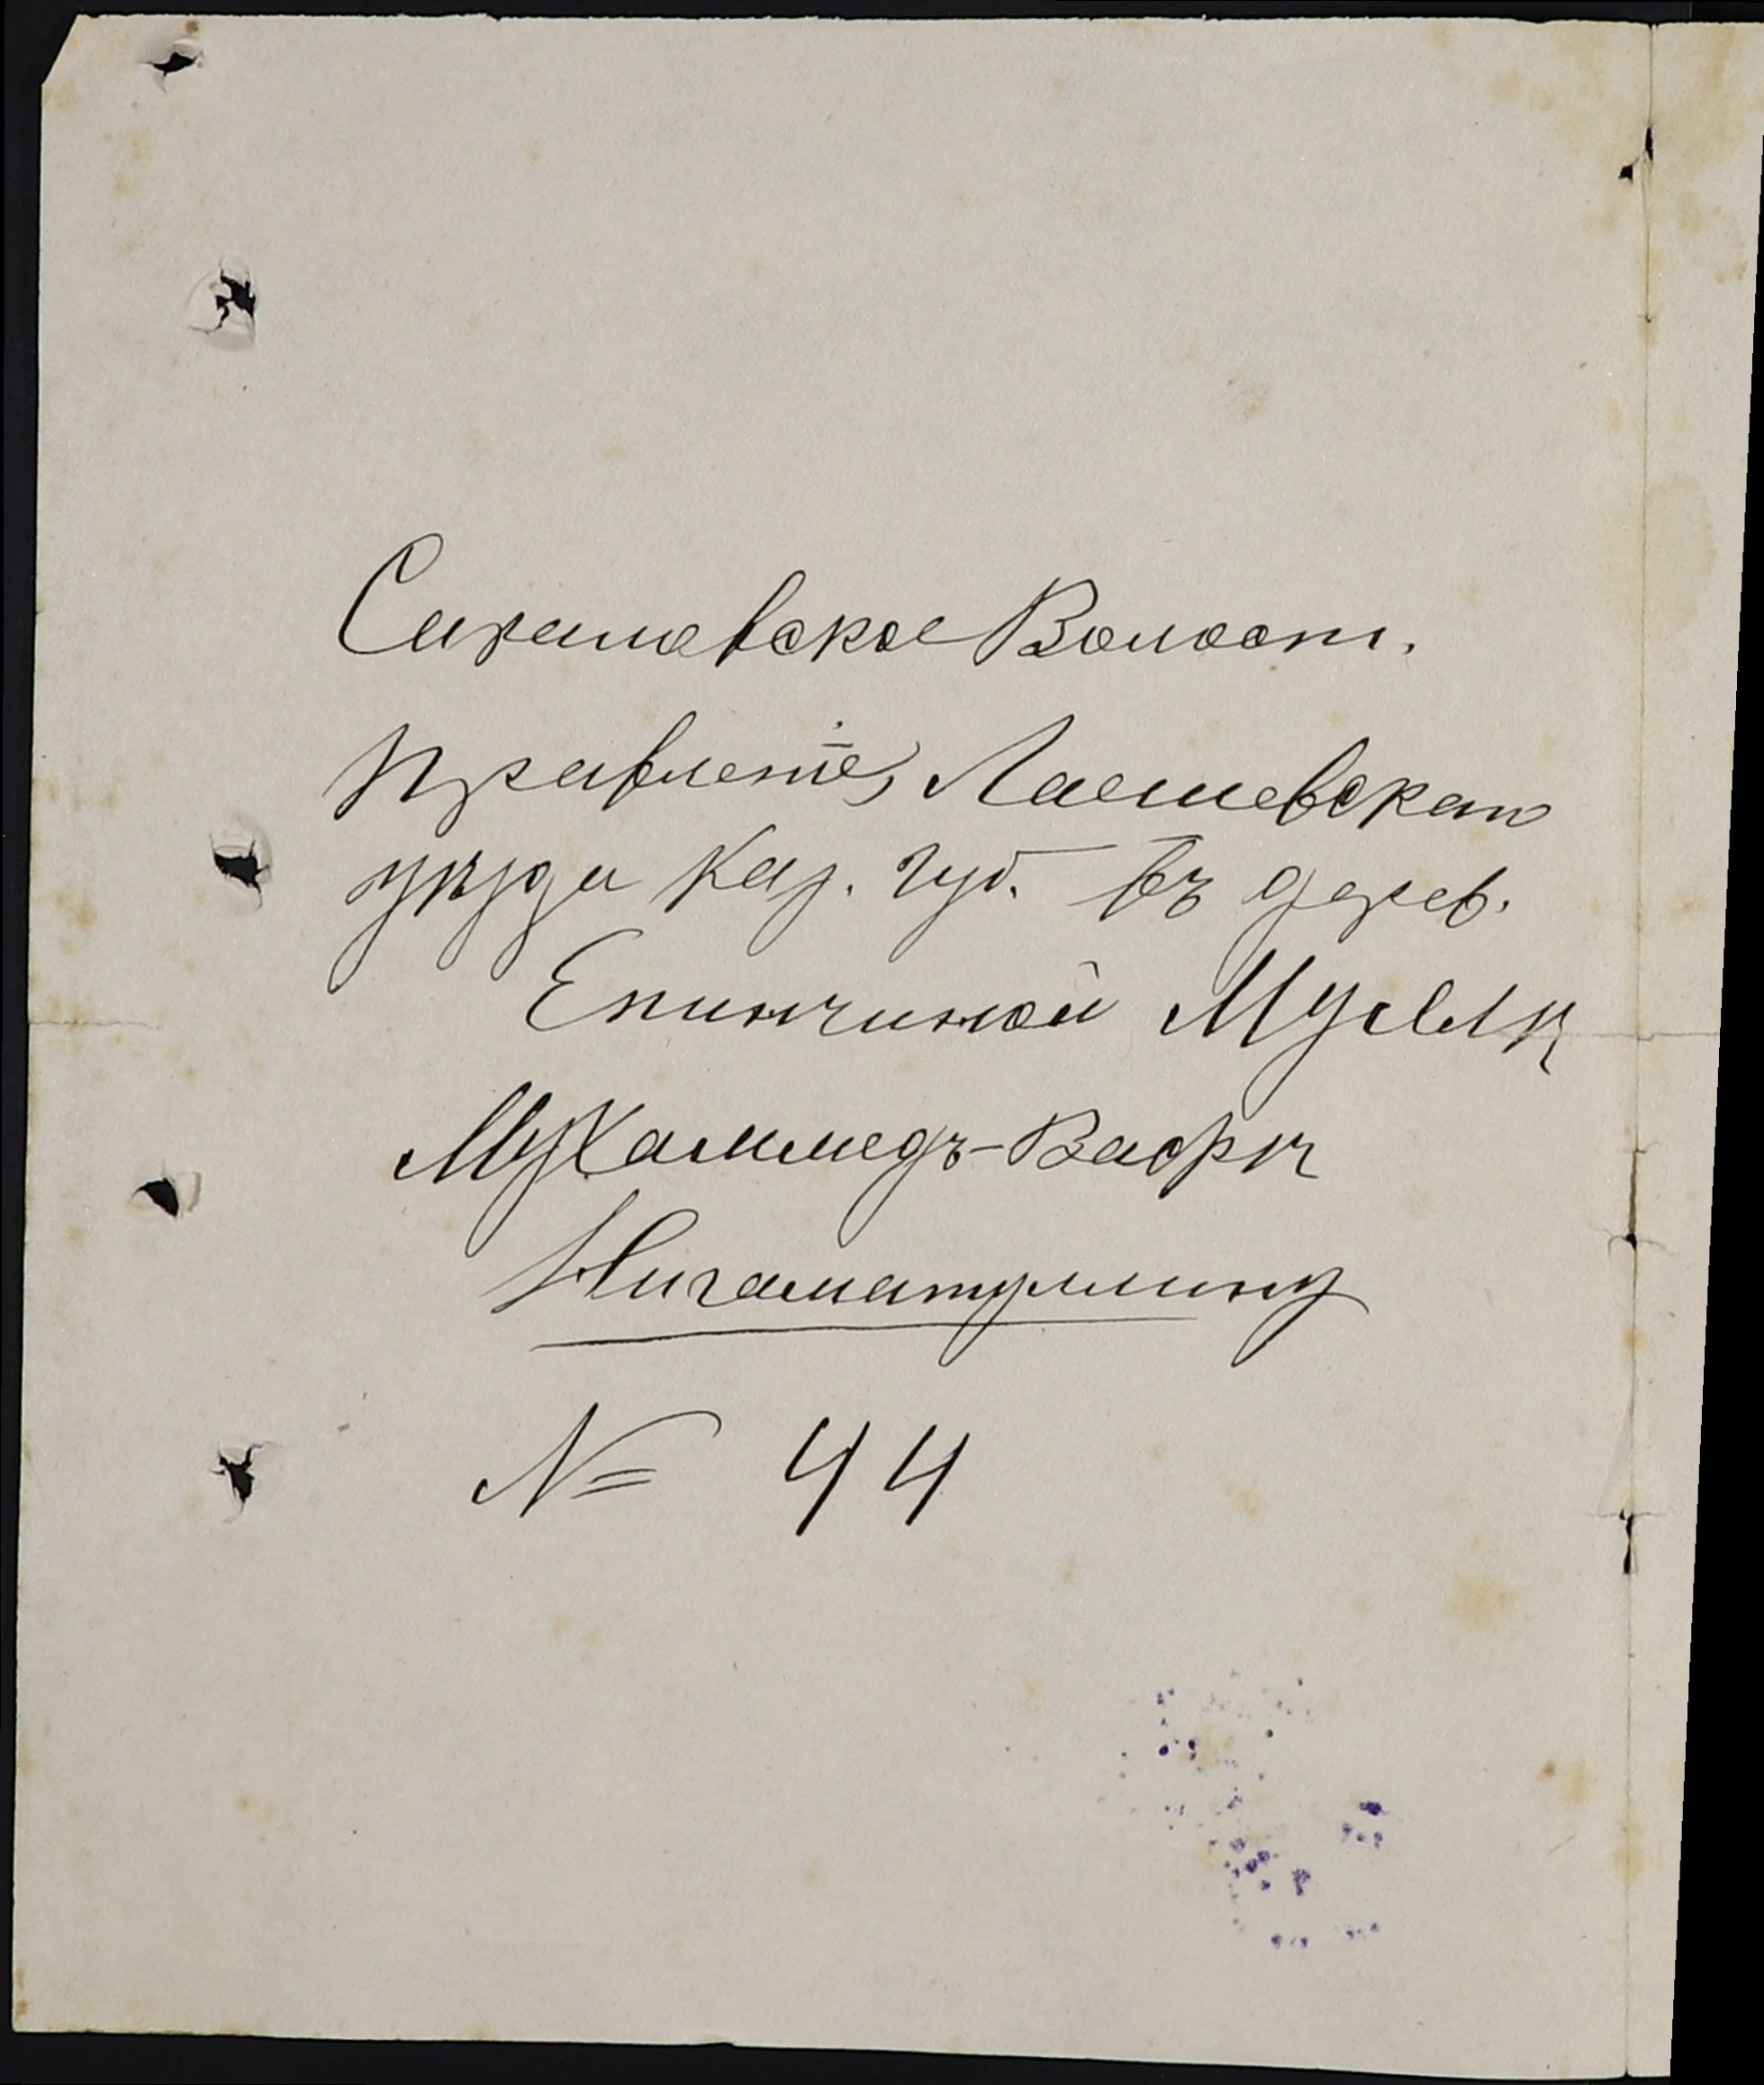 Сараловское Волост.
Правленіе, Лаешевскаго
уѣзда Каз. губ. въ дерев.
Епинчиной Муллѣ
Мухаммедъ-Вафѣ
Нигаматуллину
№ 44